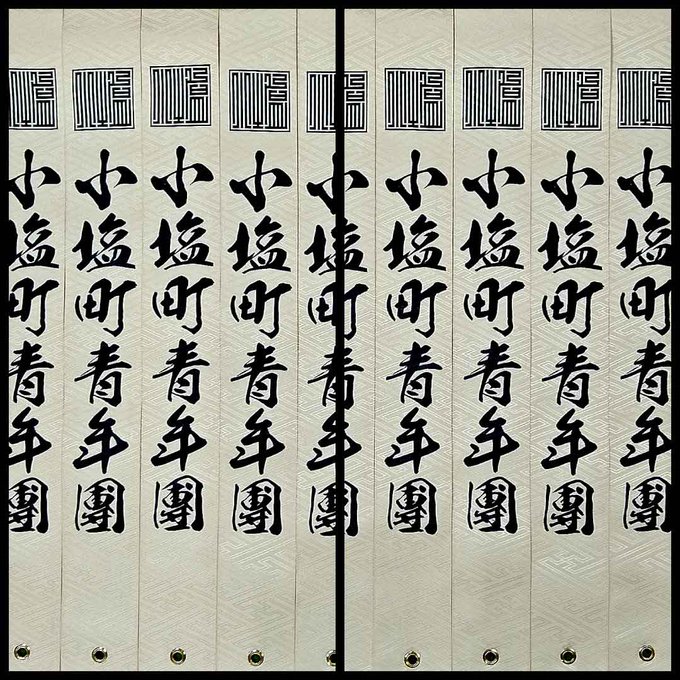 小塩町青年團
小塩町青年團
小塩町青年團
小塩町青年團
小塩町青年團
小塩町青年團
小塩町青年團
小塩町青年團
小塩町青年團